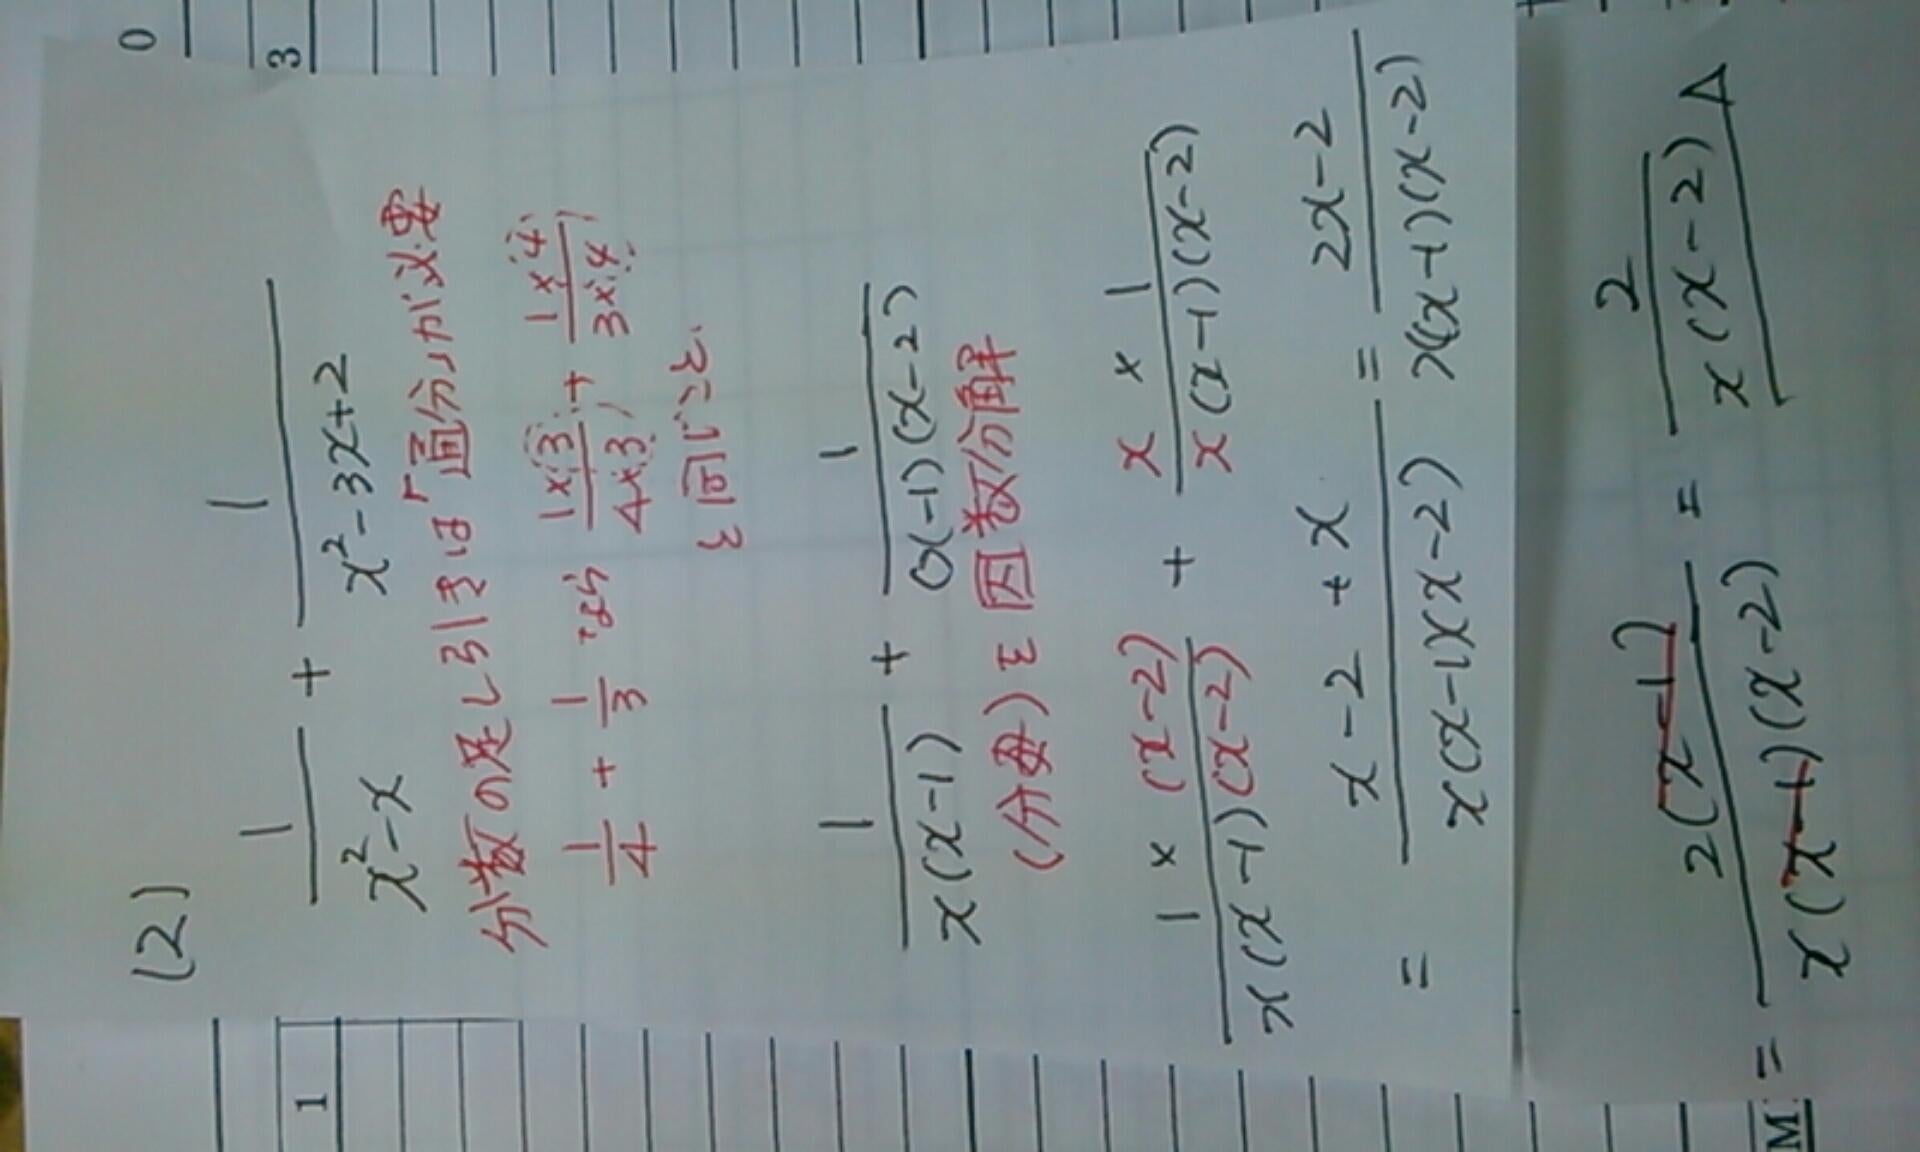 (2)
1/(x²-x) + 1/(x²-3x+2)
分数の足し引きは「通分」が必要
1/4 + 1/3 なら (1×3)/(4×3) + (1×4)/(3×4)
と同じこと.
1/(x(x-1)) + 1/((x-1)(x-2))
(分母)を因数分解
(1×(x-2))/(x(x-1)(x-2)) + (x×1)/(x(x-1)(x-2))
= (x-2+x)/(x(x-1)(x-2)) = (2x-2)/(x(x-1)(x-2))
= (2(x-1))/(x(x-1)(x-2)) = 2/(x(x-2))
0
3
1
M